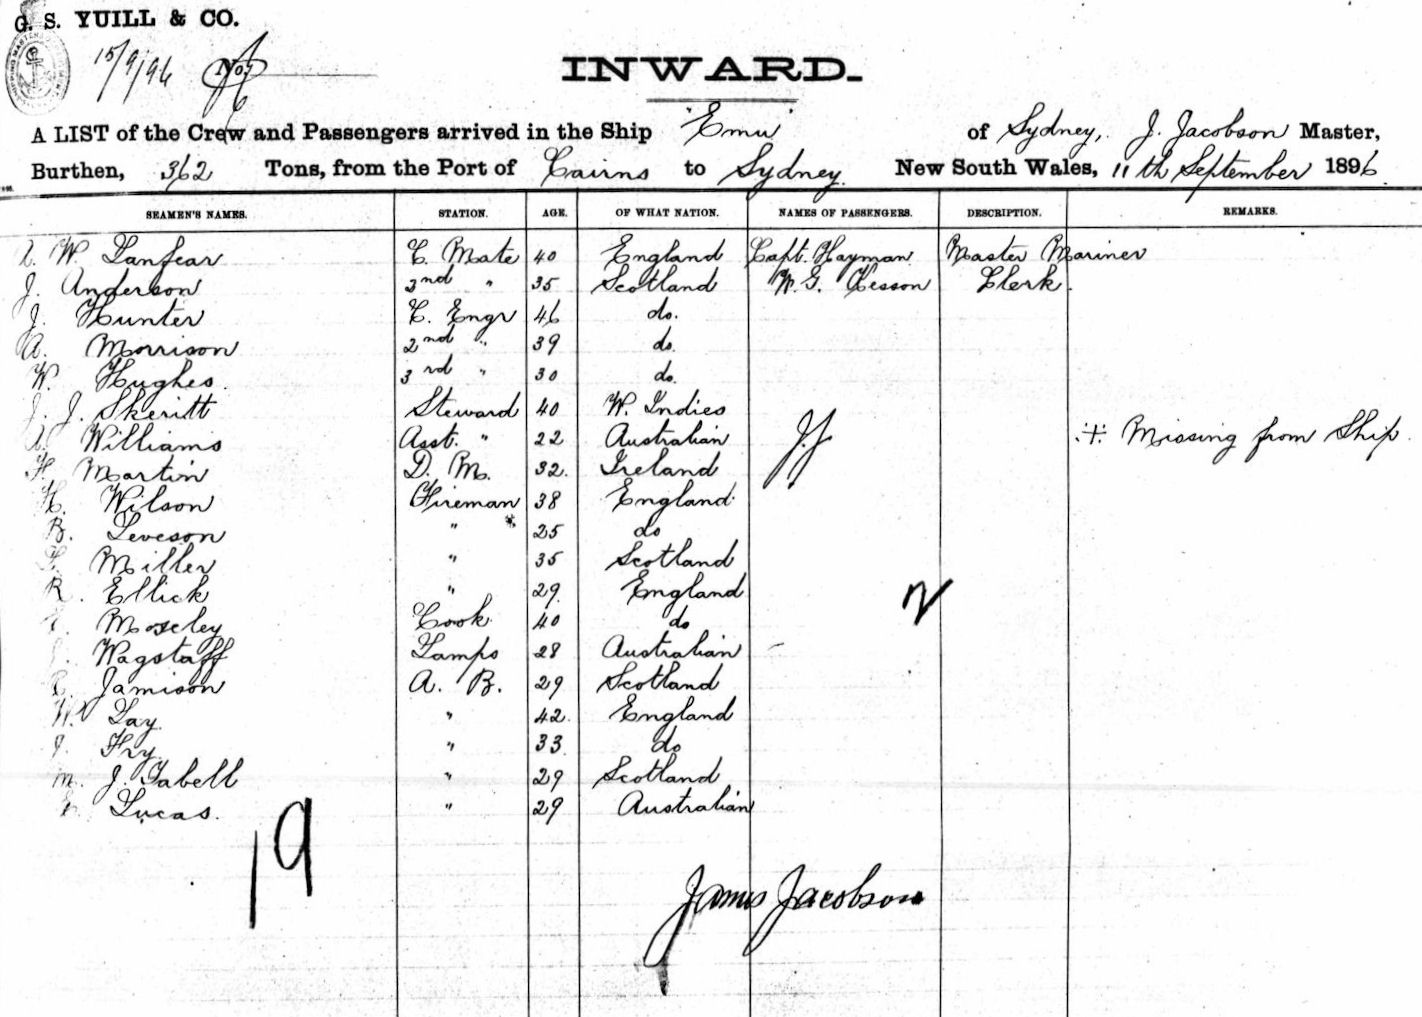 G. S. YUILL & CO.
15/9/96 No.
INWARD.
A LIST of the Crew and Passengers arrived in the Ship "Emu" of Sydney, J. Jacobson Master,
Burthen, 362 Tons, from the Port of Cairns to Sydney New South Wales, 11th September 1896.
SEAMEN'S NAMES. STATION. AGE. OF WHAT NATION. NAMES OF PASSENGERS. DESCRIPTION. REMARKS.
A. W. Lanfear C. Mate 40 England Capt. Hayman Master Mariner
J. Anderson 2nd " 35 Scotland W. G. Hesson Clerk.
J. Hunter C. Engr 46 do.
A. Morrison 2nd " 39 do.
W. Hughes. 3rd " 30 do.
J. J. Skeritt Steward 40 W. Indies
A. Williams Asst. " 22 Australian J.J. Missing from Ship.
F. Martin D. M. 32. Ireland
H. Wilson Fireman 38 England
B. Leveson " * 25 do
F. Miller " 35 Scotland
R. Ellick " 29. England
Moseley Cook 40 do
Wagstaff Lamps 28 Australian
Jamison A. B. 29 Scotland
W. Lay. " 42. England
J. Fry. " 33. do
M. J. Tabell " 29 Scotland
Lucas. " 29 Australian
19
James Jacobson